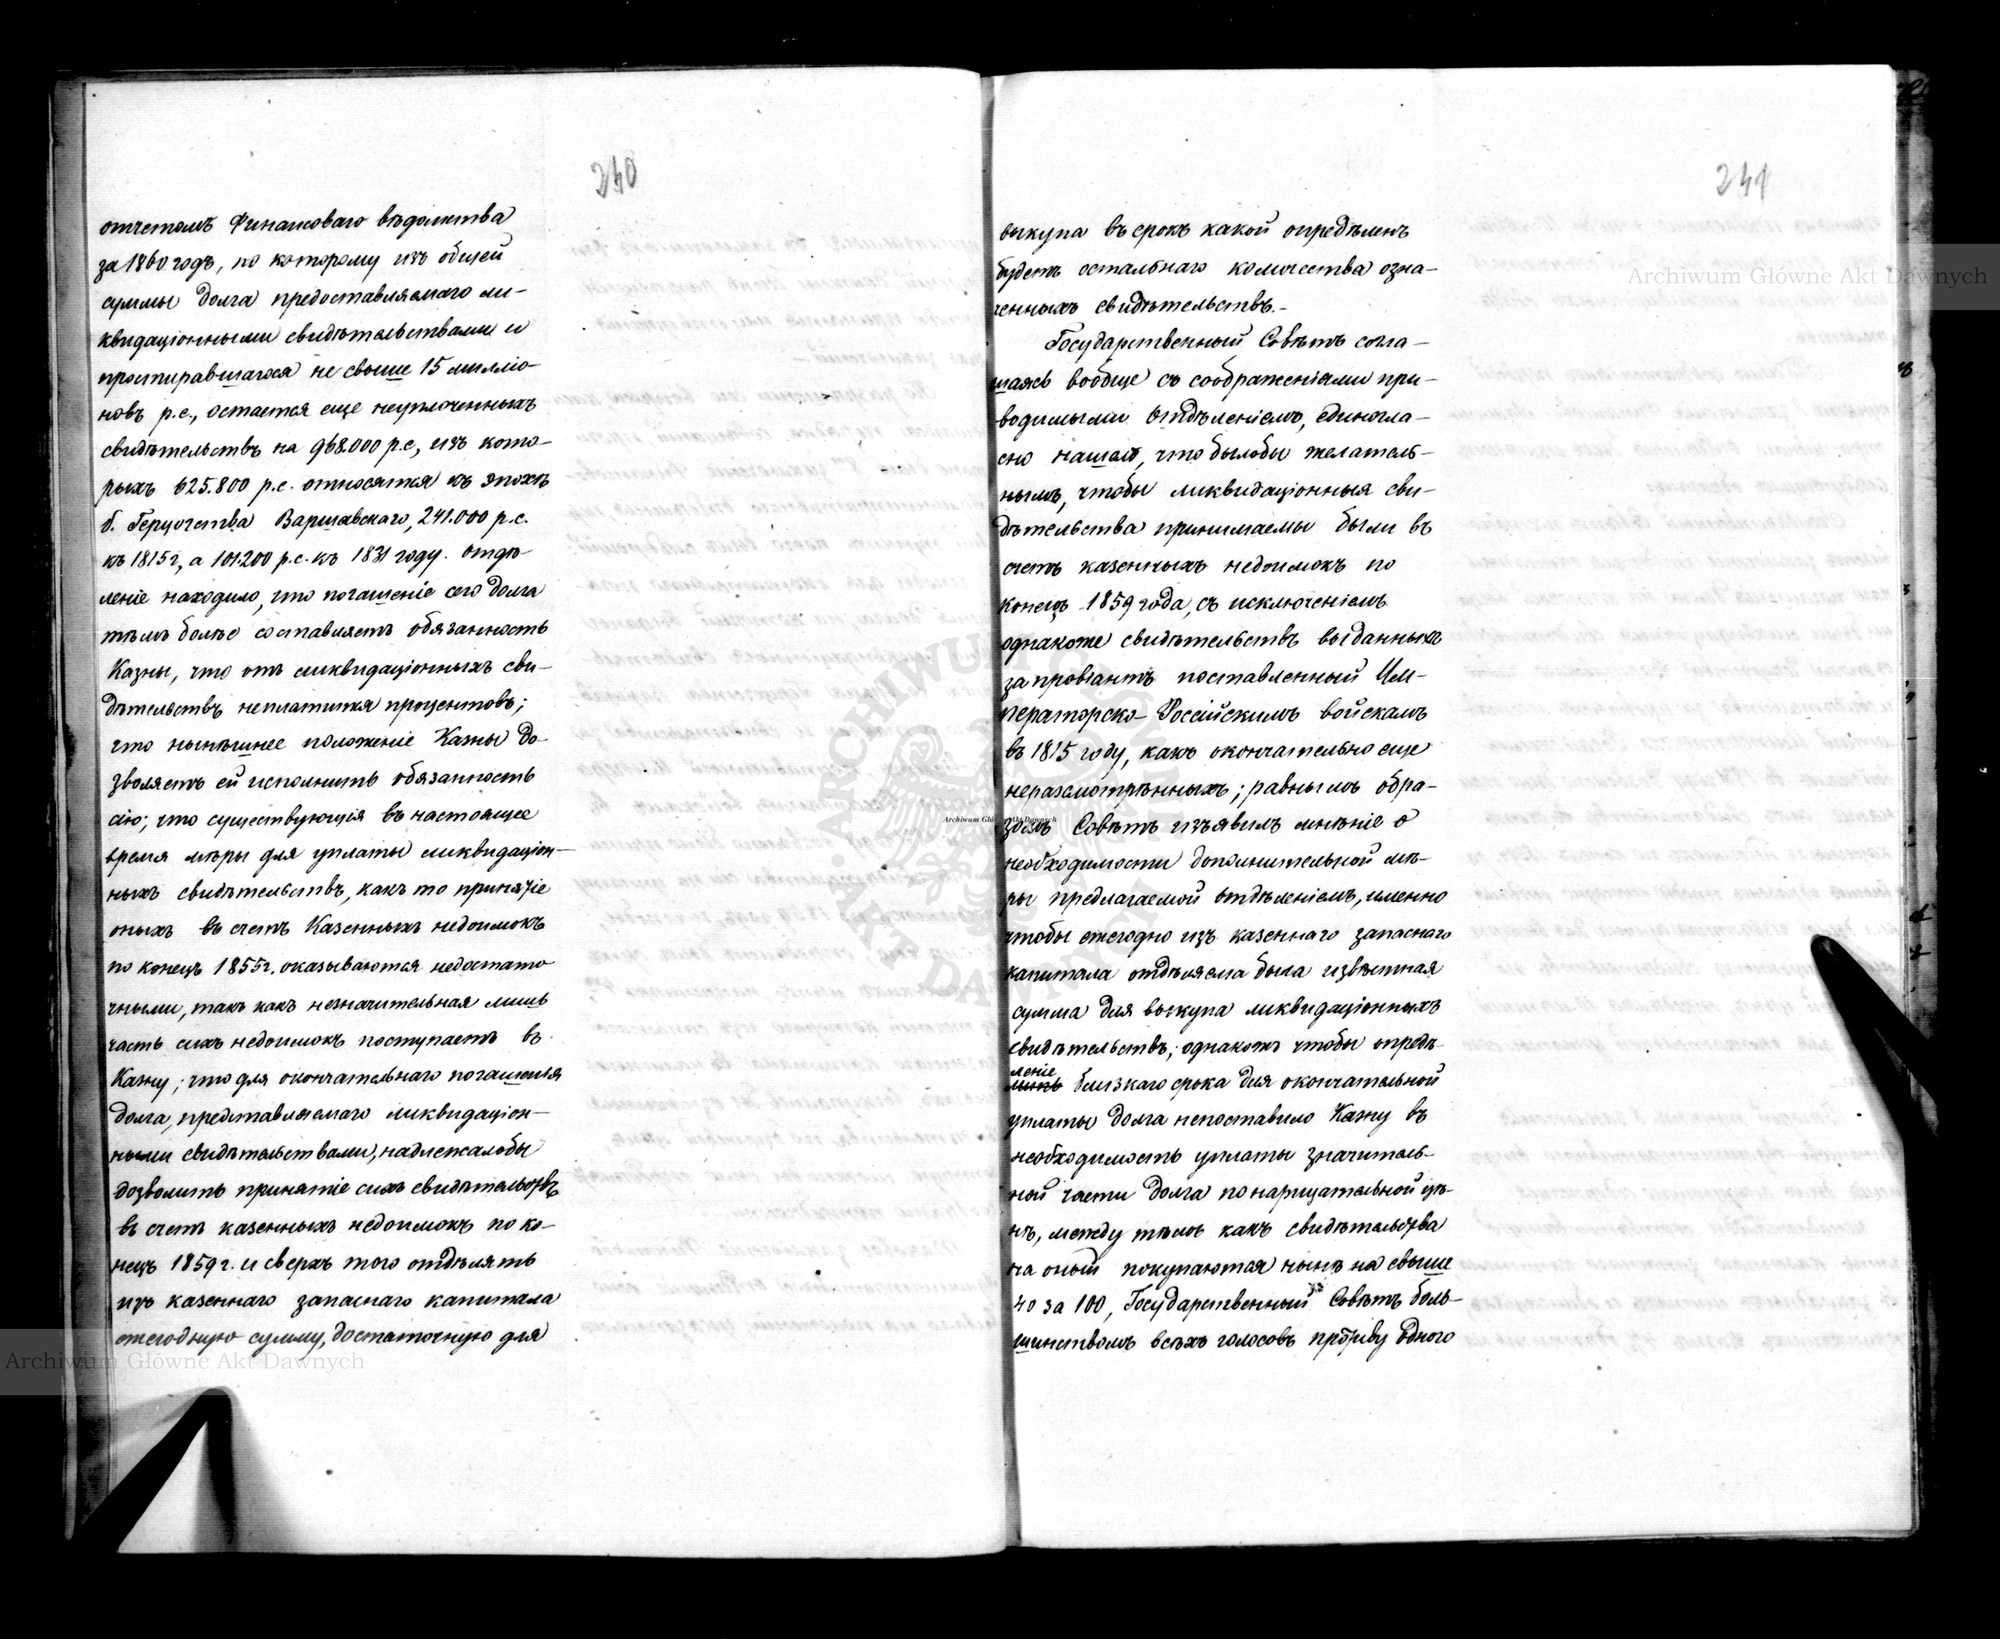 240
отчетомъ Финансоваго вѣдомства
за 1860 годъ, по которому изъ общей
суммы долга предоставляемаго ли-
квидаціонными свидѣтельствами и
простиравшагося не свыше 15 милліо-
новъ р.с., остается еще неуплоченныхъ
свидѣтельствъ на 968.000 р.с, изъ кото-
рыхъ 625.800 р.с. относятся къ эпохѣ
б. Герцогства Варшавскаго, 241.000 р.с.
къ 1815 г, а 101.200 р.с. къ 1831 году. Отдѣ-
леніе находило, что погашеніе сего долга
тѣмъ болѣе составляетъ обязанность
Казны, что отъ ликвидаціонныхъ сви-
дѣтельствъ неплатится процентовъ;
что нынѣшнее положеніе Казны до-
зволяетъ ей исполнить обязанность
сію; что существующія въ настоящее
время мѣры для уплаты ликвидаціон-
ныхъ свидѣтельствъ, какъ то принятіе
оныхъ въ счетъ Казенныхъ недоимокъ
по конецъ 1855 г. оказываются недостато
чными, такъ какъ незначительная лишь
часть сихъ недоимокъ поступаетъ въ
Казну; что для окончательнаго погашенія
долга, представляемаго ликвидаціон-
ными свидѣтельствами, надлежалобы
дозволить принятіе сихъ свидѣтельствъ
въ счетъ казенныхъ недоимокъ по ко-
нецъ 1859 г. и сверхъ того отдѣлять
изъ казеннаго запаснаго капитала
ежегодную сумму, достаточную для
241
выкупа въ срокъ какой опредѣленъ
будетъ остальнаго количества озна-
ченныхъ свидѣтельствъ.-
Государственный Совѣтъ согла-
шаясь вообще съ соображеніями при-
водимыми Отдѣленіемъ, единогла-
сно нашелъ, что былобы желатель-
нымъ, чтобы ликвидаціонныя сви-
дѣтельства принимаемы были въ
счетъ казенныхъ недоимокъ по
конецъ 1859 года, съ исключеніемъ
однакоже свидѣтельствъ выданныхъ
за провіантъ поставленный Им-
ператорско-Россійскимъ войскамъ
въ 1815 году, какъ окончательно еще
неразсмотрѣнныхъ; равнымъ обра-
зомъ Совѣтъ изъявилъ мнѣніе о
необходимости дополнительной мѣ-
ры предлагаемой Отдѣленіемъ, именно
чтобы ежегодно изъ казеннаго запаснаго
капитала отдѣляема была извѣстная
сумма для выкупа ликвидаціонныхъ
свидѣтельствъ; однакожъ чтобы опредѣ-
леніе близкаго срока для окончательной
уплаты долга непоставило Казну въ
необходимость уплаты значитель-
ной части долга по нарицательной цѣ-
нѣ, между тѣмъ какъ свидѣтельства
на оный покупаются нынѣ на свыше
40 за 100, Государственный Совѣтъ боль-
шинствомъ всѣхъ голосовъ противу одного
Archiwum Główne Akt Dawnych
Archiwum Główne Akt Dawnych
Archiwum Główne Akt Dawnych